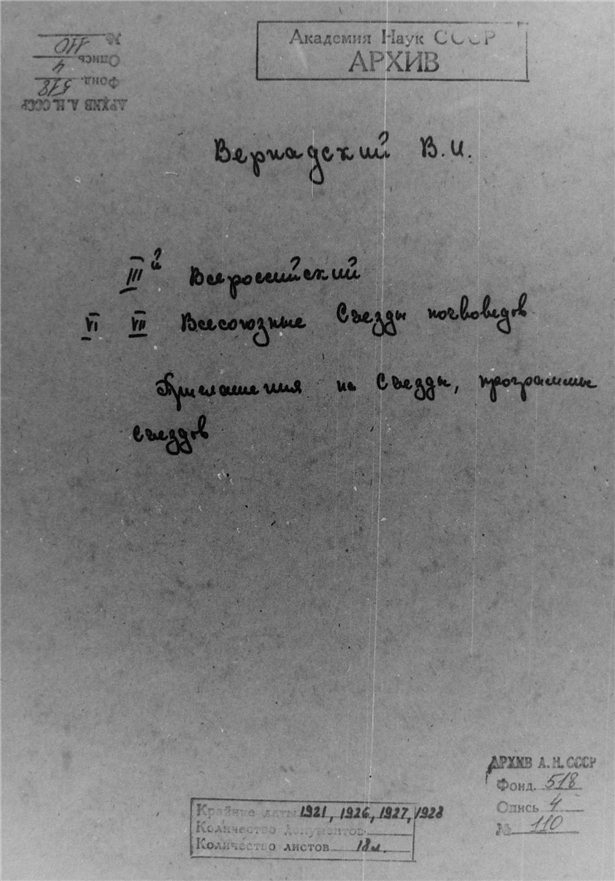 № 110
Опись 4
Фонд. 518
АРХИВ А.Н.СССР
Академия Наук СССР
АРХИВ
Вернадский В.И.
III й Всероссийский
VI VII Всесоюзные Съезды почвоведов
Приглашения на Съезды, программы
съездов
АРХИВ А.Н.СССР
Фонд. 518
Опись 4
№ 110
Крайние даты 1921, 1926, 1927, 1928
Количество документов
Количество листов 18 л.